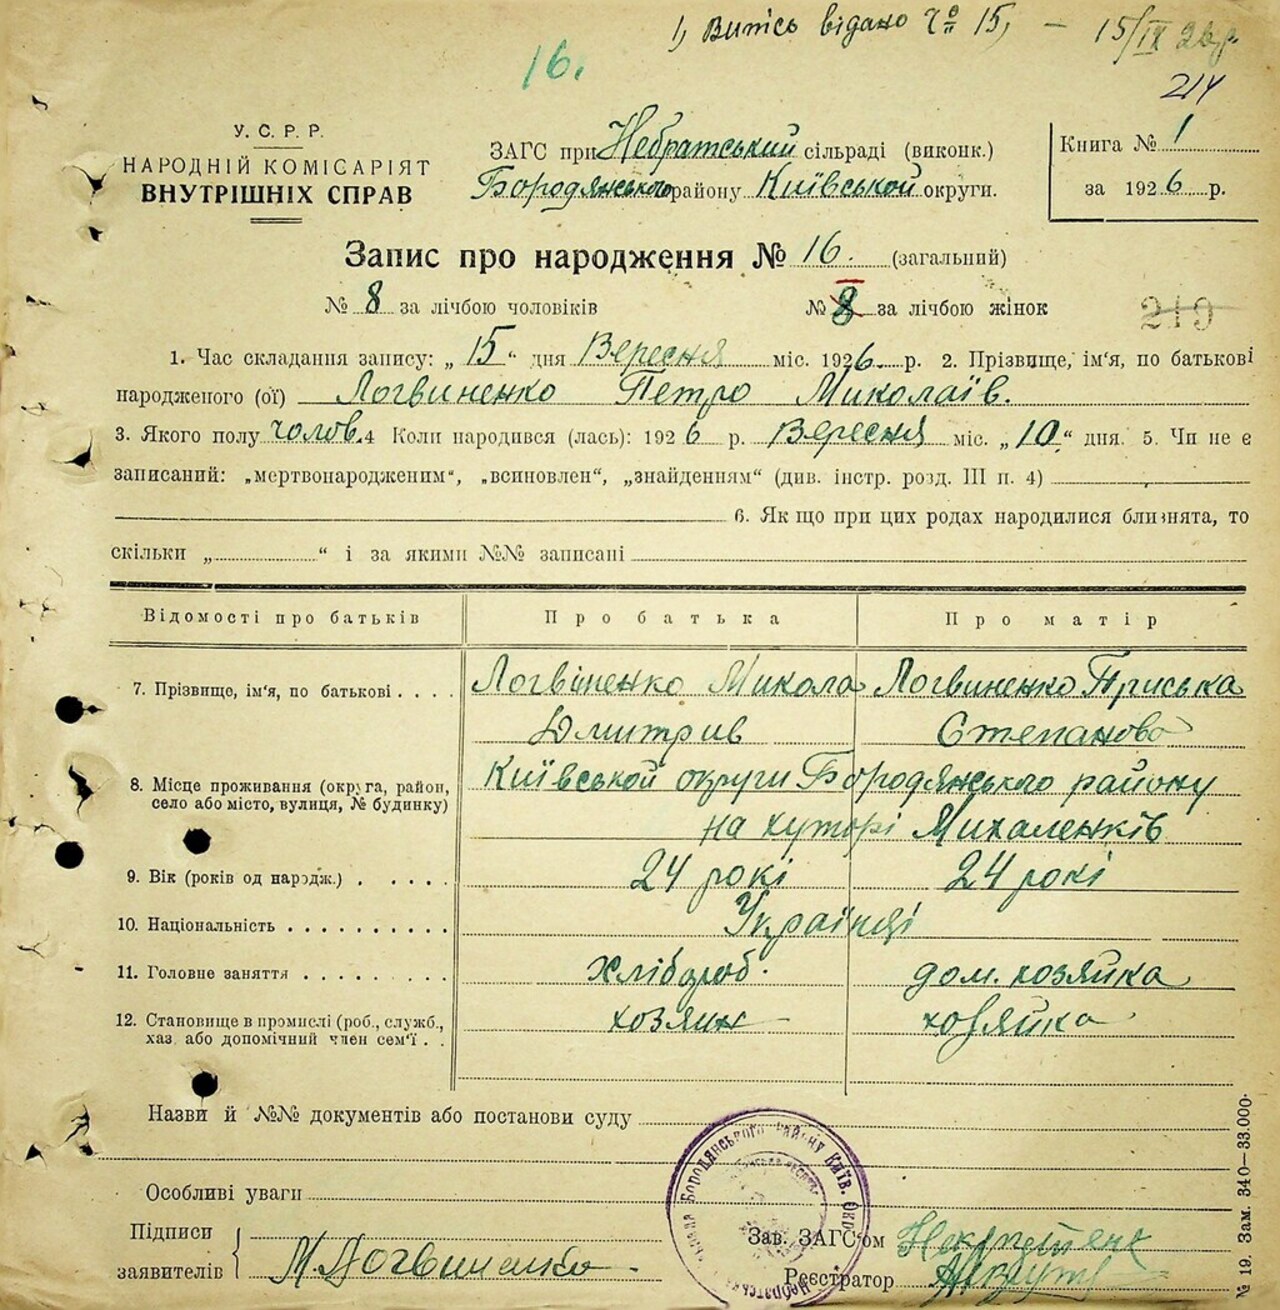 1, Витісь відано Ч 15, — 15/IX 26 р.
16.
214
У. С. Р. Р.
НАРОДНІЙ КОМІСАРІЯТ
ВНУТРІШНІХ СПРАВ
ЗАГС при Небратський сільраді (виконк.)
Бородянського району Київської округи.
Книга № 1
за 1926 р.
Запис про народження № 16. (загальний)
№ 8 за лічбою чоловіків
№ 8 за лічбою жінок
219
1. Час складання запису: „ 15 “ дня Вересня міс. 1926 р. 2. Прізвище, ім'я, по батькові
народженого (ої) Логвиненко Петро Миколаїв.
3. Якого полу чолов. 4 Коли народився (лась): 1926 р. Вересня міс. „ 10. “ дня. 5. Чи не є
записаний: „мертвонародженим“, „всиновлен“, „знайденням“ (див. інстр. розд. III п. 4)
6. Якщо при цих родах народилися близнята, то
скільки „ “ і за якими №№ записані
Відомості про батьків Про батька Про матір
7. Прізвище, ім'я, по батькові . . . . Логвіненко Микола Логвиненко Приська
Дмитрив Степаново
8. Місце проживання (округа, район, Київської округи Бородянського району
село або місто, вулиця, № будинку)
на хуторі Михаленків
9. Вік (років од народж.) . . . . . 24 рокі 24 рокі
10. Національність . . . . . . . . . . Українці
11. Головне заняття . . . . . . . . . Хлібороб. дом. хозяйка
12. Становище в промислі (роб., служб., хозяин хозяйка
хаз. або допомічний член сем'ї . .
Назви й №№ документів або постанови суду
Особливі уваги
Підписи
заявителів М. Логвиненко
Бородянського району Київ. Окр.
Зав. ЗАГС'ом
Реєстратор
№ 19. Зам. 340—33.000·